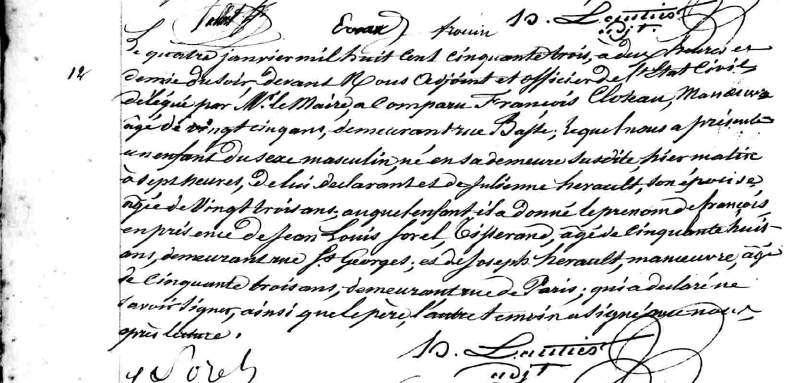 Evrard trouin B. Lauties
adjt.
12
Le quatre janvier mil huit cent cinquante trois, a deux heures et
demie du soir, devant Nous Adjoint et officier de l'Etat Civil
délégué par Mr. le Maire, a Comparu François Cloteau, Manœuvre
âgé de vingt cinq ans, demeurant rue Basse; lequel nous a présenté
un enfant du sexe masculin, né en sa demeure susdite, hier matin
à sept heures, de lui déclarant et de Julienne herault, son épouse,
agée de Vingt trois ans, auquel enfant, il a donné le prenom de françois
en présence de Jean Louis Sorel, Tisserand, âgé de cinquante huit
ans, demeurant rue St. Georges; et de Joseph herault, manœuvre, âgé
de cinquante trois ans, demeurant rue de Paris; qui a declaré ne
savoir signer, ainsi que le père, l'autre temoin a signé avec nous
après lecture.
B. Lauties
adjt
Sorel